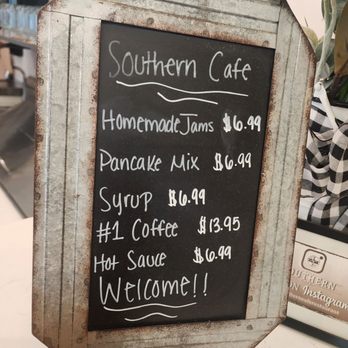 Southern Cafe
Homemade Jams $6.99
Pancake Mix $6.99
Syrup $6.99
#1 Coffee $13.95
Hot Sauce $6.99
Welcome!!
Instagram